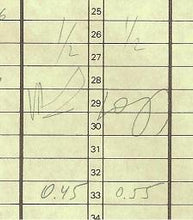 25
26
1/2 1/2
27
28
29
30
31
32
0.45 33 0.55
34